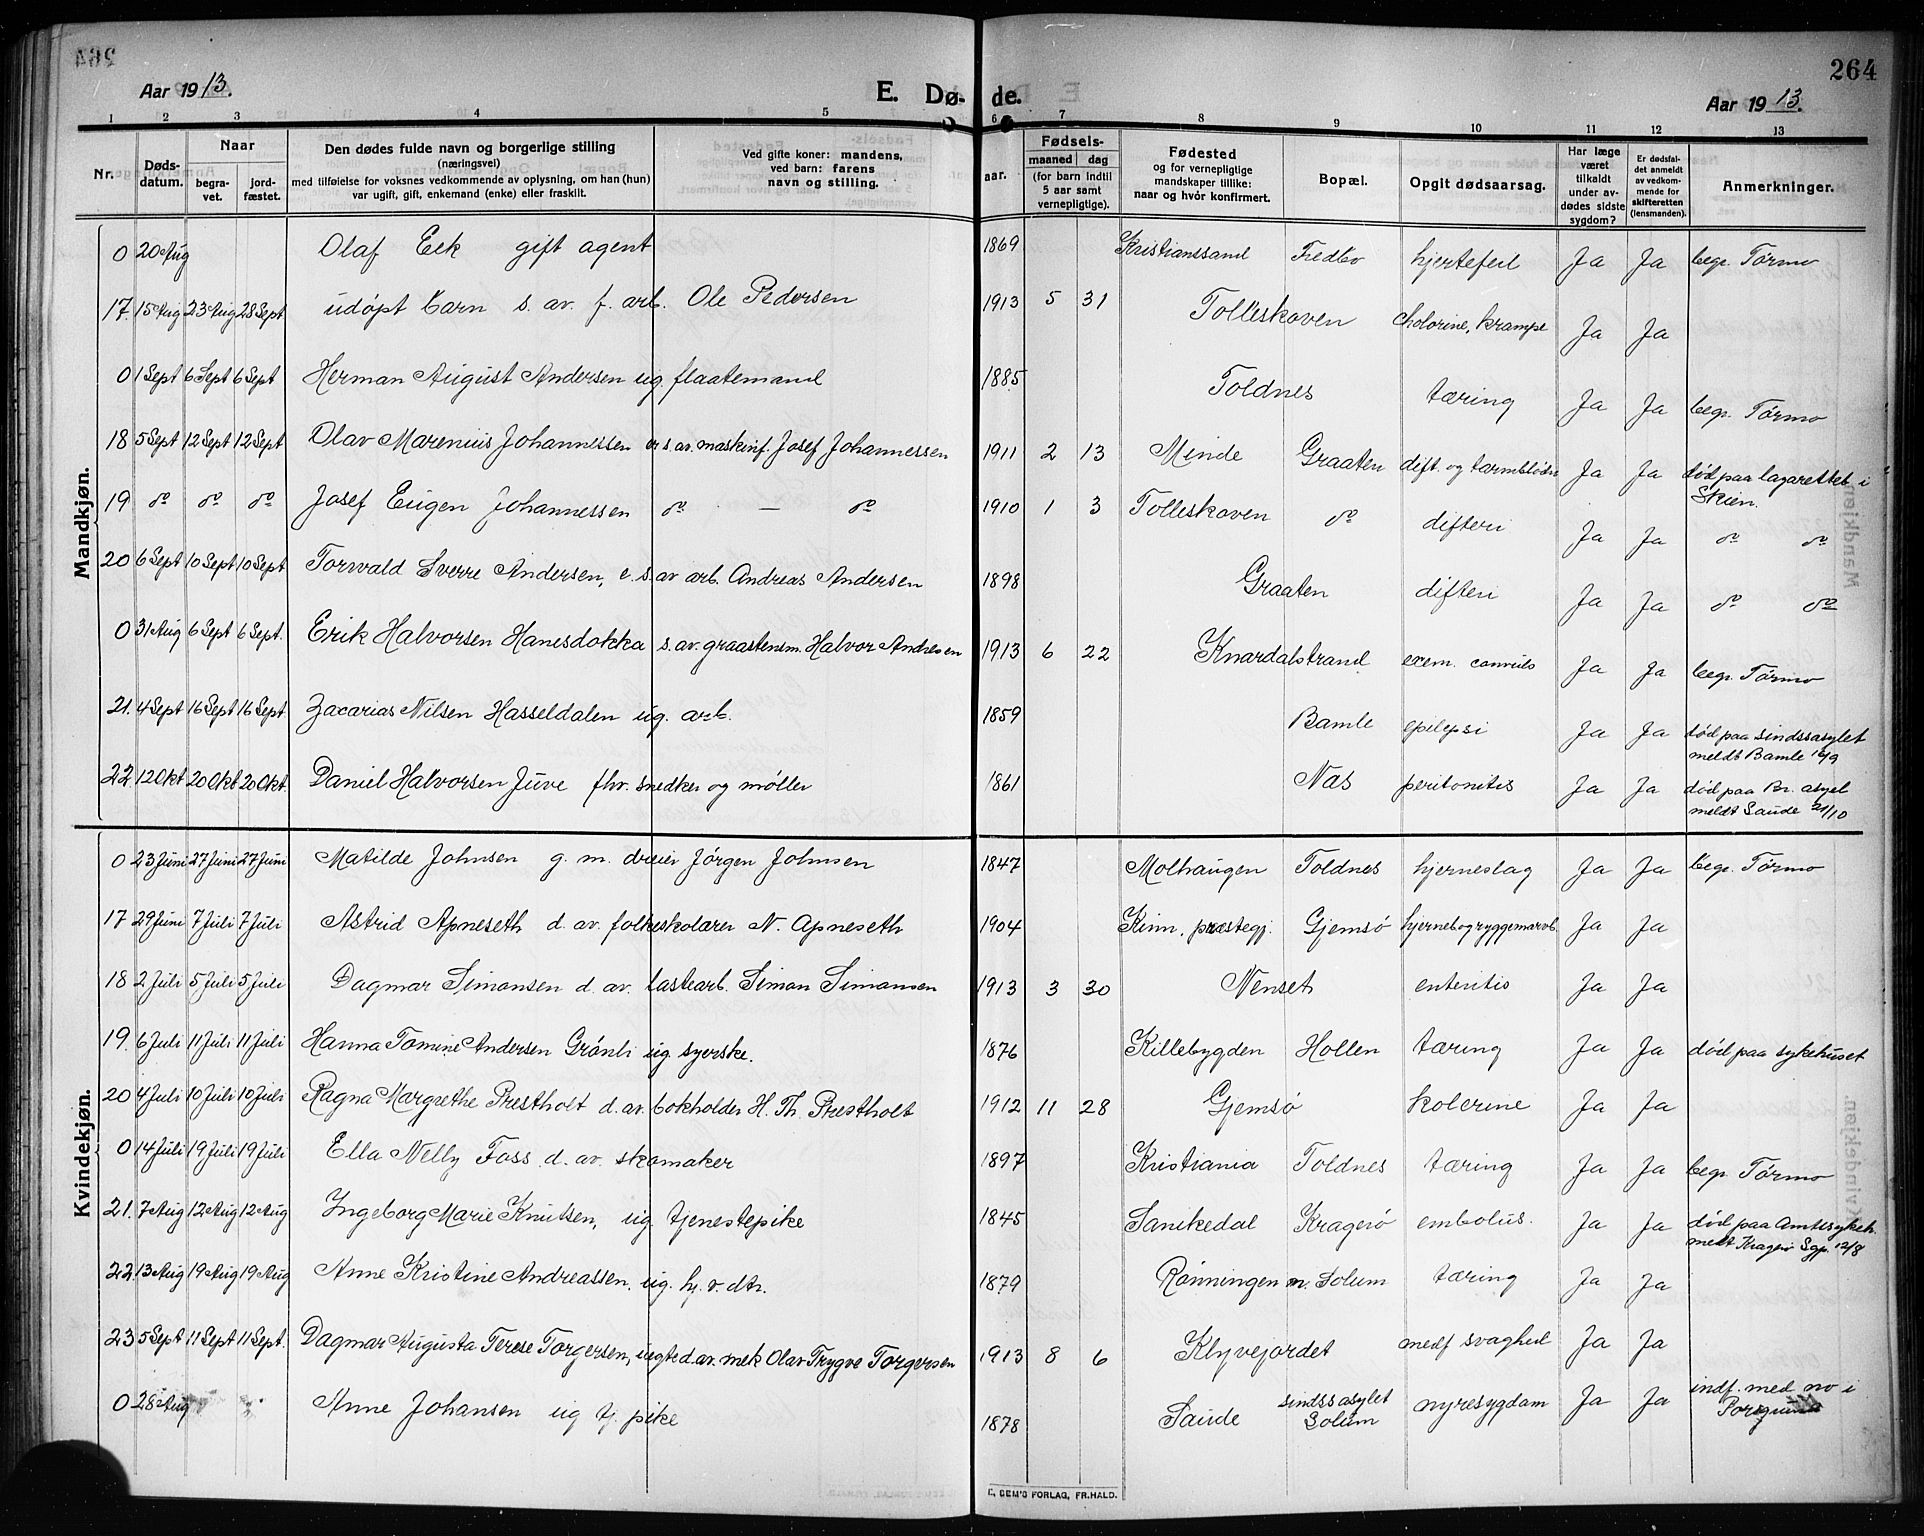 264
Aar 1913. E. Dø- de. Aar 1913.
1 2 3 4 5 6 7 8 9 10 11 12 13
Nr. Døds-datum. Naar begra-vet. jord-fæstet. Den dødes fulde navn og borgerlige stilling (næringsvei) med tilføielse for voksnes vedkommende av oplysning, om han (hun) var ugift, gift, enkemand (enke) eller fraskilt. Ved gifte koner: mandens, ved barn: farens navn og stilling. aar. Fødsels- maaned dag (for barn indtil 5 aar samt vernepligtige). Fødested og for vernepligtige mandskaper tillike: naar og hvor konfirmert. Bopæl. Opgit dødsaarsag. Har læge været tilkaldt under av-dødes sidste sygdom? Er dødsfal-det anmeldt av vedkom-mende for skifteretten (lensmanden). Anmerkninger.
Mandkjøn.
0 20 Aug Olaf Eek gift agent 1869 Kristianssand Fredbo hjertefeil Ja Ja begr. Tørmo
17. 15 Aug 23 Aug 28 Sept udøpt barn s. av. f. arb. Ole Pedersen 1913 5 31 Tolleskoven cholorine, krampe Ja Ja
0 1 Sept 6 Sept 6 Sept Herman August Andersen ug. flaatemand 1885 Toldnes tæring Ja Ja begr. Tørmo
18 5 Sept 12 Sept 12 Sept Olav Marenius Johannessen e s. av. maskinf. Josef Johannessen 1911 2 13 Minde Graaten dift. og tarmblødn Ja Ja død paa lagarettet i Skien.
19 do do do Josef Eugen Johannessen do — do 1910 1 3 Tolleskoven do difteri Ja Ja do do
20 6 Sept 10 Sept 10 Sept Torwald Sverre Andersen, e. s. av arb. Andreas Andersen 1898 Graaten difteri Ja Ja do do
0 31 Aug 6 Sept 6 Sept. Erik Halvorsen Hanesdokka s. av. graastensm. Halvor Andresen 1913 6 22 Knardalstrand exem. convuls Ja Ja begr. Tørmo
21. 4 Sept 16 Sept 16 Sept Zacarias Nilsen Hasseldalen ug. arb. 1859 Bamle epilepsi Ja Ja død paa sindssasylet meldt Bamle 16/9
22. 12 Okt 20 Okt 20 Okt. Daniel Halvorsen Juve fhv. snedker og møller 1861 Næs peritonitis Ja Ja død paa Br. asyel meldt Saude 21/10
Kvindekjøn.
0 23 Juni 27 Juni 27 Juni Matilde Johnsen g. m. dreier Jørgen Johnsen 1847 Molhaugen Toldnes hjerneslag Ja Ja begr. Tørmo
17 29 Juni 7 Juli 7 Juli Astrid Apneseth d. av. folkeskolærer N. Apneseth 1904 Kinn, præstegj. Gjemsø hjernebogryggemarvb. Ja Ja
18 2 Juli 5 Juli 5 Juli Dagmar Simonsen d. av. lastearb. Simon Simonsen 1913 3 30 Nenset enteritis Ja Ja
19. 6 Juli 11 Juli 11 Juli Hanna Tomine Andersen Grønli ug syerske. 1876 Killebygden Hollen tæring Ja Ja død paa sykehuset
20 4 Juli 10 Juli 10 Juli Ragna Margrethe Prestholt d. av. bokholder H. Th. Prestholt 1912 11 28 Gjemsø kolerine Ja Ja
0 14 Juli 19 Juli 19 Juli Ella Nelly Foss d. av. skomaker 1897 Kristiania Toldnes tæring Ja Ja begr. Tørmo
21. 7 Aug 12 Aug 12 Aug Ingeborg Marie Knutsen, ug. tjenestepike 1845 Sanikedal Kragerø embolus. Ja Ja død paa Amtssykeh. meldt Kragerø Sgp. 12/8
22. 13 Aug 19 Aug 19 Aug Anne Kristine Andreassen. ug. hj. v. dtr. 1879 Rønningen n. Solum tæring Ja Ja
23 5 Sept 11 Sept 11 Sept. Dagmar Augusta Terese Torgersen, uegte d. av. mek Olav Trygve Torgersen 1913 8 6 Klyvejordet medf svaghed Ja Ja
0 28 Aug Anne Johansen ug tj. pike 1878 Saude sindssasylet Solum nyresygdom Ja Ja indf. med no i Porsgrund
E. SEM'S FORLAG, FR.HALD.